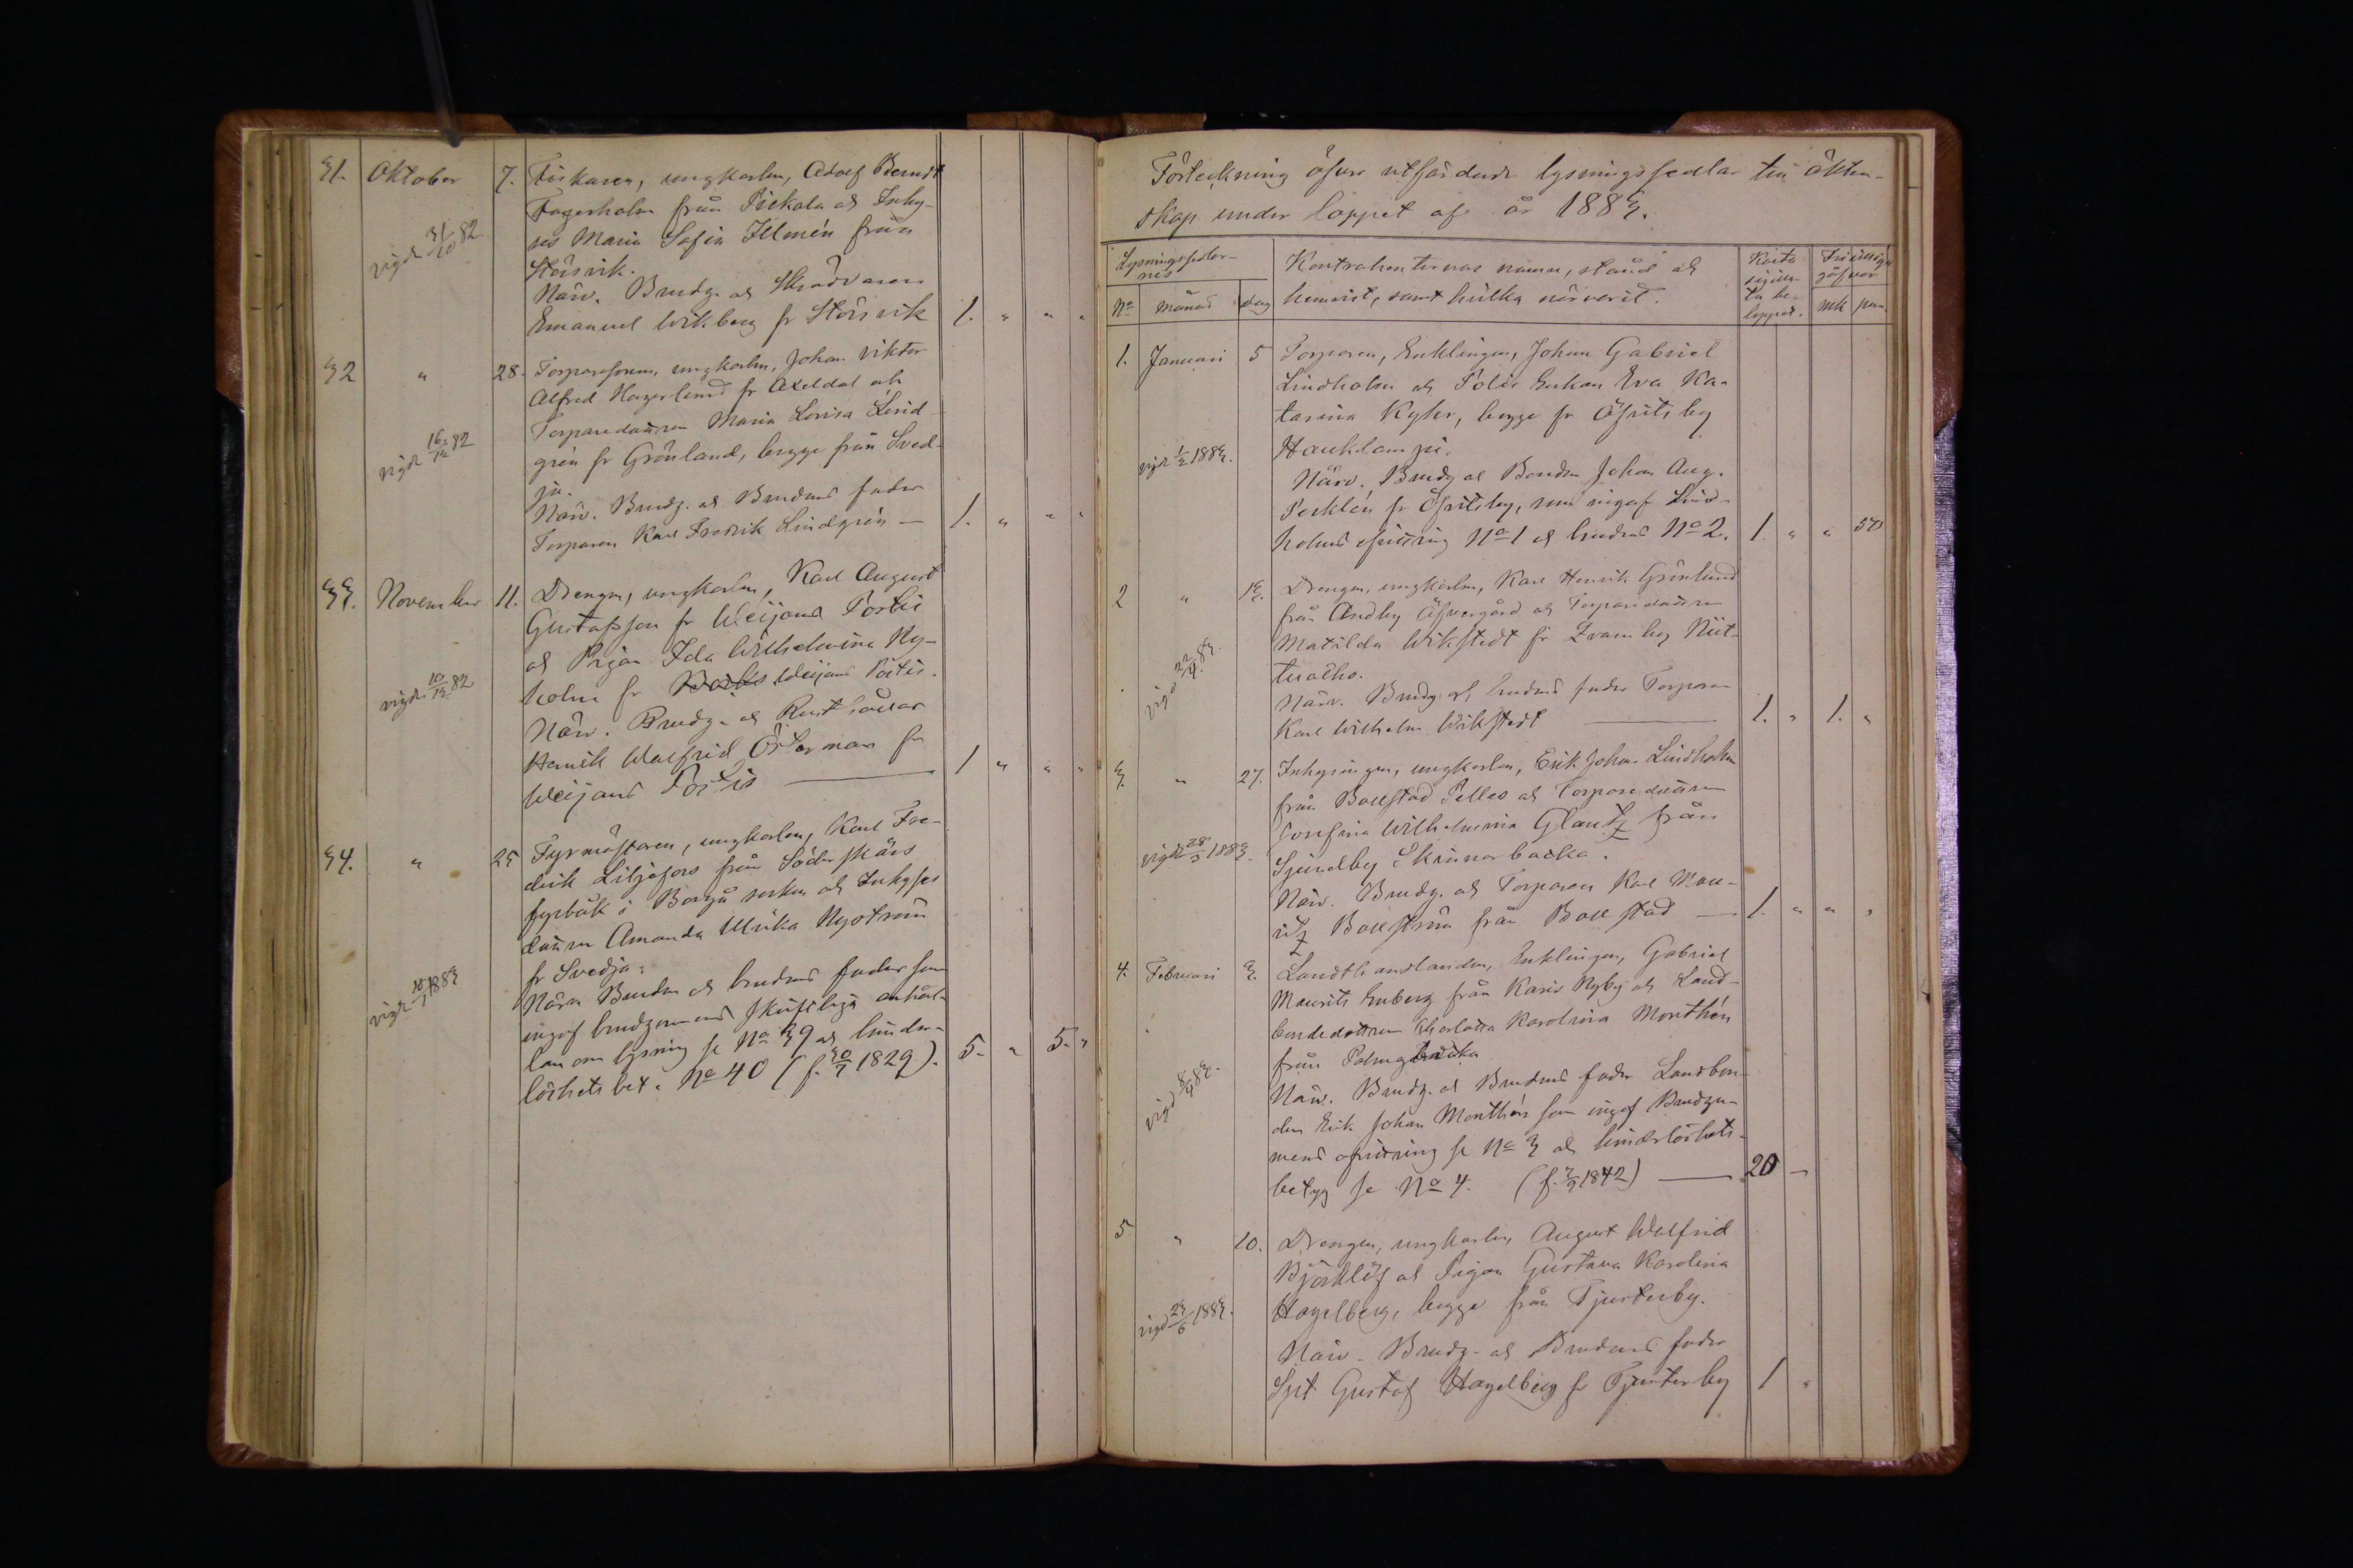 31. Oktober 7. Fiskaren, ungkarlen, Adolf Berndt
Fagerholm från Pickala och Inhy-
ses Maria Sofia Illmén från
vigde 31/10 82
Störsvik.
Närv. Brudg. och Skräddaren
Emanuel Wikberg fr Störsvik 1. " " "
32 " 28. Torparesonen, ungkarlen, Johan Viktor
Alfred Hagerlund fr Axeldal och
Torparedottren Maria Lovisa Lind-
vigde 16/12 82
grén fr Grönland, begge från Sved-
ja.
Närv. Brudg. och Brudens fader
Torparen Karl Fredrik Lindgrén — 1. " " "
33. November 11. Drengen, ungkarlen, Karl August
Gustafsson fr Weijans Postis
och Pigan Ida Wilhelmina Ny-
holm fr Weijans Postis.
vigde 10/12 82
Närv. Brudg. och Rusthållar
Henrik Walfrid Österman fr
Weijans Postis — 1 " " "
34. " 25 Fyrmästaren, ungkarlen, Karl Fre-
drik Liljefors från Söderskärs
fyrbåk i Borgå socken och Inhyses
dottren Amanda Ulrika Nyström
fr Svedja.
vigde 10/1 1883
Närv Bruden och brudens fader som
ingaf brudgummens skriftliga anhål-
lan om lysning se No 39 och hinder-
löshets bet. No 40 (f. 30/7 1829). 5. " 5. "
Förteckning öfver utfärdade lysningssedlar till äkten-
skap under loppet af år 1883.
Lysningssedler-
nes
No månad dag
Kontrahenternas namn, stånd och
hemvist, samt hvilka närvarit.
Karta
sigilla
ta be-
loppet.
Frivilliga
gåfvor
mk pen.
1. Januari 5 Torparen, Enklingen, Johan Gabriel
Lindholm och Enkan Eva Ka-
tarina Kyhr, begge fr Öfvitsby
vigde 1/2 1883.
Hauklampi.
Närv. Brudg och Bonden Johan Aug.
fr Öfvitsby, som ingaf Lind-
holms No 1 och brudens No 2. 1. " " 50
2 " 13. Drengen, ungkarlen, Karl Henrik Grönlund
från Andby Öfvergård och Torparedottren
Matilda Wikstedt fr Evansby Niit-
tuaho.
vigd 22/4 83.
Närv. Brudg. och brudens fader Torparen
Karl Wilhelm Wikstedt — 1. " 1. "
3. " 27. Inhysingen, ungkarlen, Erik Johan Lindholm
från Bollstad Pellas och Torparedottren
Josefina Wilhelmina Glantz från
vigde 28/3 1883.
Sjundby Skinnarbacka.
Närv. Brudg. och Torparen Karl Mau-
ritz Bollström från Bollstad — 1. " " "
4. Februari 3. Landthandlanden, Enklingen, Gabriel
Maurits Enberg från Karis Nyby och Land-
bondedottren Charlotta Karolina Monthén
från
vigd 8/4 83.
Närv. Brudg. och Brudens fader Landbon-
den Erik Johan Monthén som ingaf Brudgu-
mens afvittring se No 3 och hinderlöshets-
betyg se No 4. (f. 7/9 1842) — 20 —
5 " 10. Drengen, ungkarlen August Walfrid
Björklöf och Pigan Gustava Karolina
Hagelberg, begge från Tjusterby.
vigd 23/6 1883.
Närv. Brudg. och Brudens fader
Syt. Gustaf Hagelberg fr Tjusterby 1 "